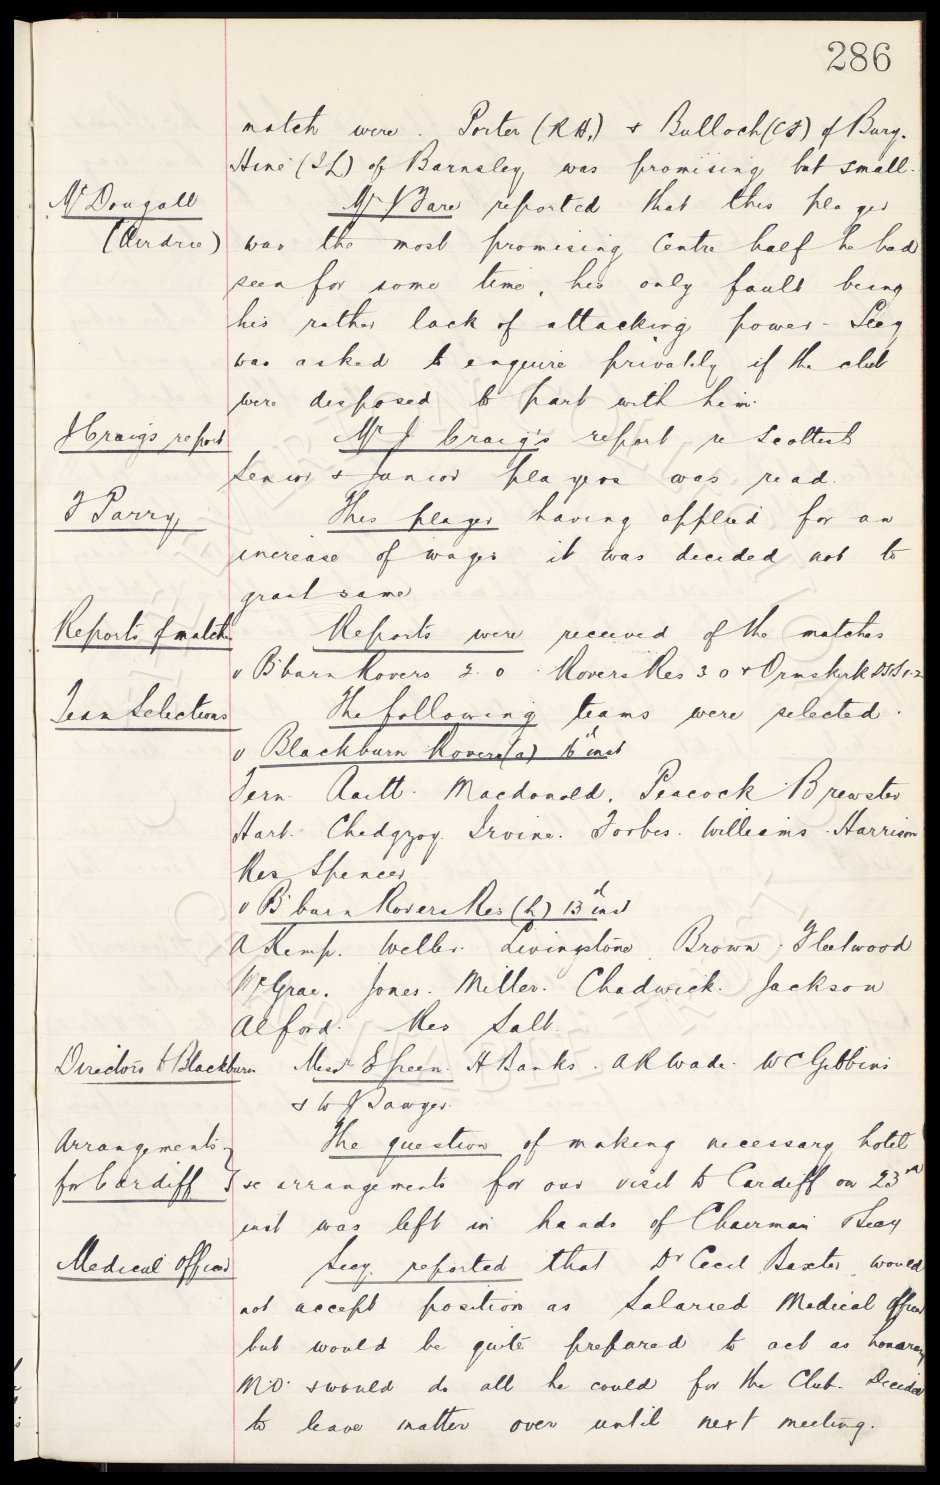 286
match were. Porter (R.H.) & Bulloch (C F) of Bury.
Hine (I L) of Barnsley was promising but small.
McDougall
Mr Bare reported that this player
(Airdrie)
was the most promising Centre half he had
seen for some time, his only fault being
his rather lack of attacking power - Secy
was asked to enquire privately if the club
were disposed to part with him.
J Craig's report
Mr J Craig's report re Scottish
Senior & Junior players was read.
F Parry
This player having applied for an
increase of wages it was decided not to
grant same
Reports of matches
Reports were received of the matches
v B'burn Rovers 2.0 Rovers Res 3 0 & Ormskirk DSS 1-2
Team Selections
The following teams were selected.
v Blackburn Rovers (a) 16th inst
Fern. Raitt. Macdonald. Peacock Brewster
Hart. Chedgzoy. Irvine. Forbes. Williams. Harrison
Res Spencer
v B'burn Rovers Res (h) 13th inst
A Kemp. Weller. Livingstone Brown. Fleetwood
McGrae. Jones. Miller. Chadwick. Jackson
Alford. Res Salt.
Directors to Blackburn
Messrs E Green. H Banks. A R Wade. W C Gibbins
& W Sawyer.
Arrangements
The question of making necessary hotel
for Cardiff
&c arrangements for our visit to Cardiff on 23rd
inst was left in hands of Chairman & Secy
Medical Officer
Secy. reported that Dr Cecil Baxter would
not accept position as Salaried Medical Officer
but would be quite prepared to act as honorary
M.O. & would do all he could for the Club. Decided
to leave matter over until next meeting.